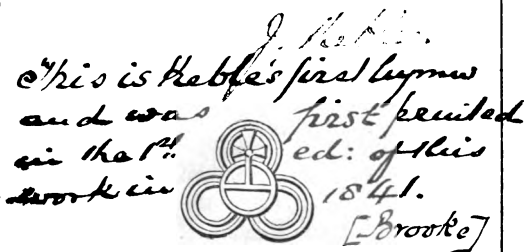 J. Keble.
This is Keble's first hymn
and was first printed
in the 1st ed: of this
work in 1841.
[Brooke]